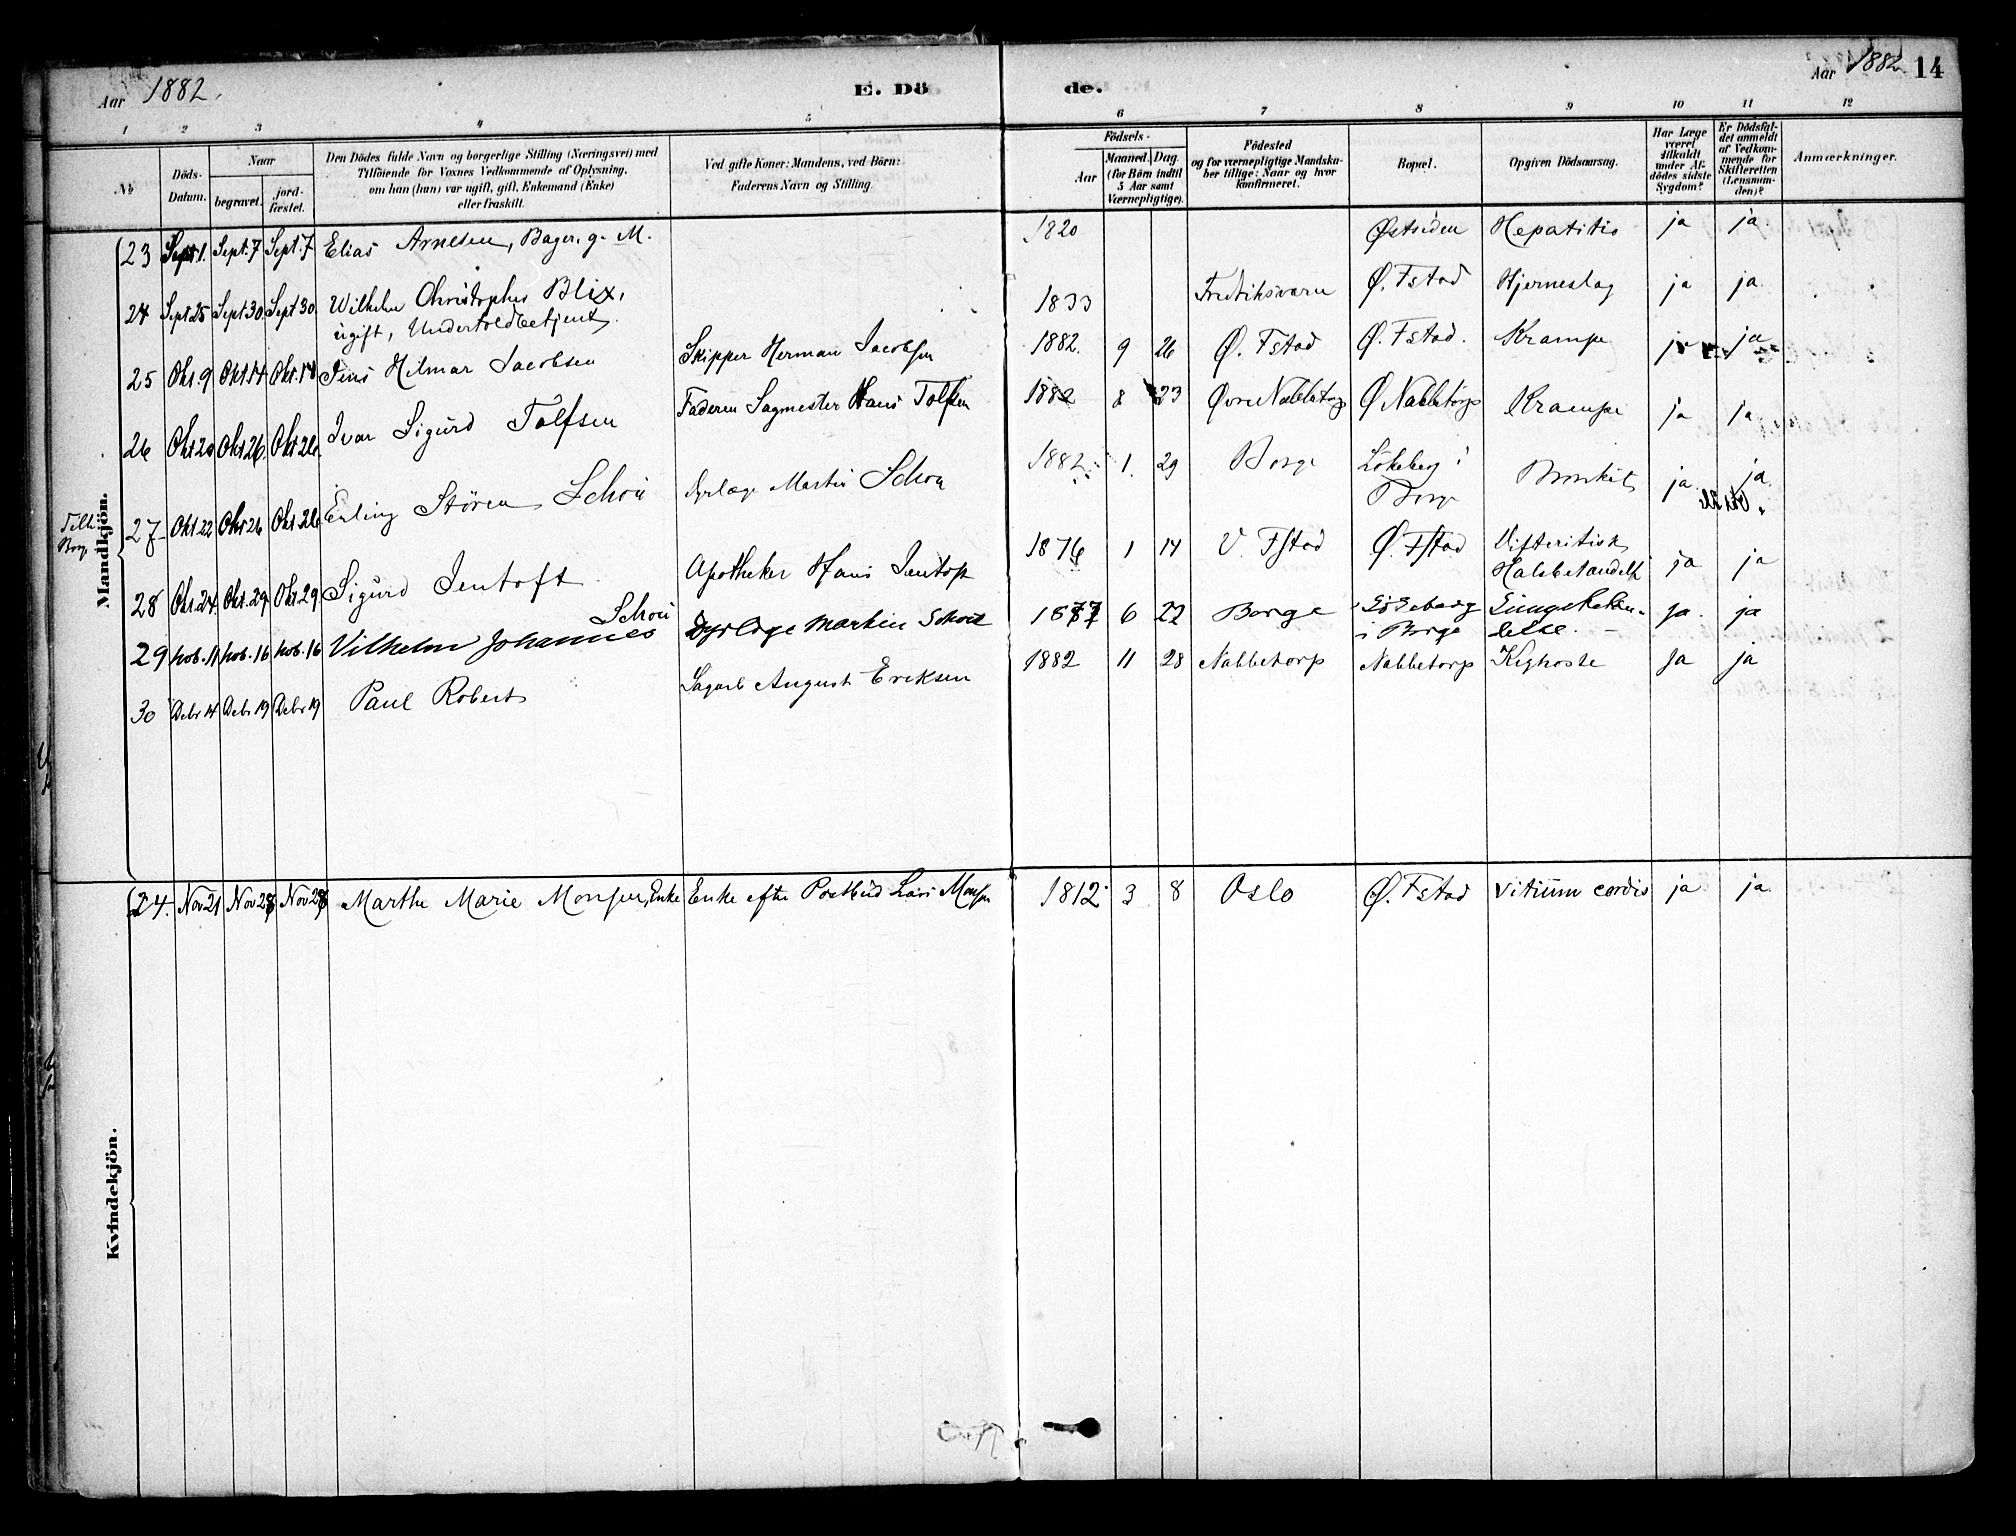 Aar 1882. E. Dö
de. Aar 1882 14
1 2 3 4 5 6 7 8 9 10 11 12
No
Döds-Datum.
Naar
begravet.
jord-fæstet.
Den Dödes fulde Navn og borgerlige Stilling (Næringsvei) med
Tilföiende for Voxnes Vedkommende af Oplysning,
om han (hun) var ugift, gift, Enkemand (Enke)
eller fraskilt.
Ved gifte Koner: Mandens, ved Börn:
Faderens Navn og Stilling.
Födsels-
Aar
Maaned. Dag.
(for Börn indtil
5 Aar samt
Værnepligtige).
Födested
og for værnepligtige Mandska-
ber tillige: Naar og hvor
konfirmeret.
Bopæl.
Opgiven Dödsaarsag.
Har Læge
været
tilkaldt
under Af-
dödes sidste
Sygdom?
Er Dödsfal-
det anmeldt
af Vedkom-
mende for
Skifteretten
(Lensman-
den)?
Anmærkninger.
Mandkjön.
23 Sept 1. Sept. 7 Sept. 7 Elias Arnesen, Bager, g. M. 1820 Østsiden Hepatitis ja ja.
24 Sept 25 Sept 30. Sept 30. Wilhelm Christopher Blix, 1833 Fredriksværn Ø. Fstad Hjerneslag ja ja
ugift, Undertoldbetjent.
25 Okt. 9 Okt 14 Okt. 14 Jens Hilmar Jacobsen Skipper Herman Jacobsen 1882. 9 26 Ø. Fstad Ø. Fstad. Krampe ja ja
26 Okt 20 Okt 26. Okt 26. Ivar Sigurd Tolfsen Faderen Sagmester Hans Tolfsen 1882 8 23 Øvre Nabbetorp Ø Nabbetorp Krampe ja ja
27 Okt 22 Okt 26 Okt 26 Erling Stören Schou Dyrlæge Martin Schou 1882 1. 29 Borge Lökeberg i Bronkit ja ja.
Borge Okt 26
28 Okt. 24. Okt. 29 Okt 29 Sigurd Jentoft Apotheker Hans Jentoft 1876 1 14 V. Fstad Ø. Fstad Difteritisk
Halsbetændelse ja ja
29 Nob. 11 Nob. 16 Nob. 16 Vilhelm Johannes Schou Dyrlæge Martin Schou 1877 6 22 Borge Lökeberg
i Borge Lungebeten-
delse. ja. ja
30 Debr 14 Debr 19 Debr 19 Paul Robert Sagarb August Eriksen 1882 11 28 Nabbetorp Nabbetorp Kighoste ja ja
Kvindekjön.
24. Nov 21 Nov 28 Nov 28 Marthe Marie Monsen, Enke Enke efter Postbud Lars Monsen 1812 3 8 Oslo Ø. Fstad Vitium cordis ja. ja.